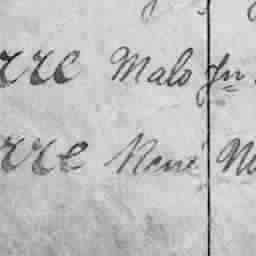 rre Malo Jn
rre René